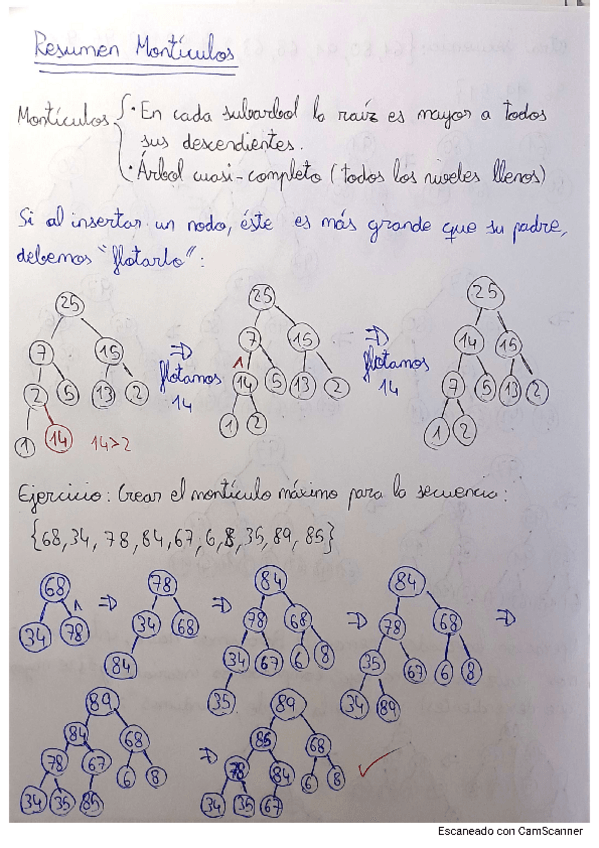 Resumen Montículos
Montículos { · En cada subarbol la raíz es mayor a todos
sus descendientes.
· Árbol cuasi-completo (todos los niveles llenos)
Si al insertar un nodo, éste es más grande que su padre,
debemos "flotarlo":
25 25 25
7 15 ⇒ 7 15 ⇒ 14 15
flotamos 14 flotamos 14
2 5 13 2 14 5 13 2 7 5 13 2
1 14 14>2 1 2 1 2
Ejercicio: Crear el montículo máximo para la secuencia:
{68, 34, 78, 84, 67, 6, 8, 35, 89, 85}
68 ⇒ 78 ⇒ 84 ⇒ 84 ⇒
34 78 34 68 78 68 78 68
84 34 67 6 8 35 67 6 8
35 34 89
89 ⇒ 89
84 68 85 68
78 67 6 8 78 84 6 8
34 35 85 34 35 67
Escaneado con CamScanner